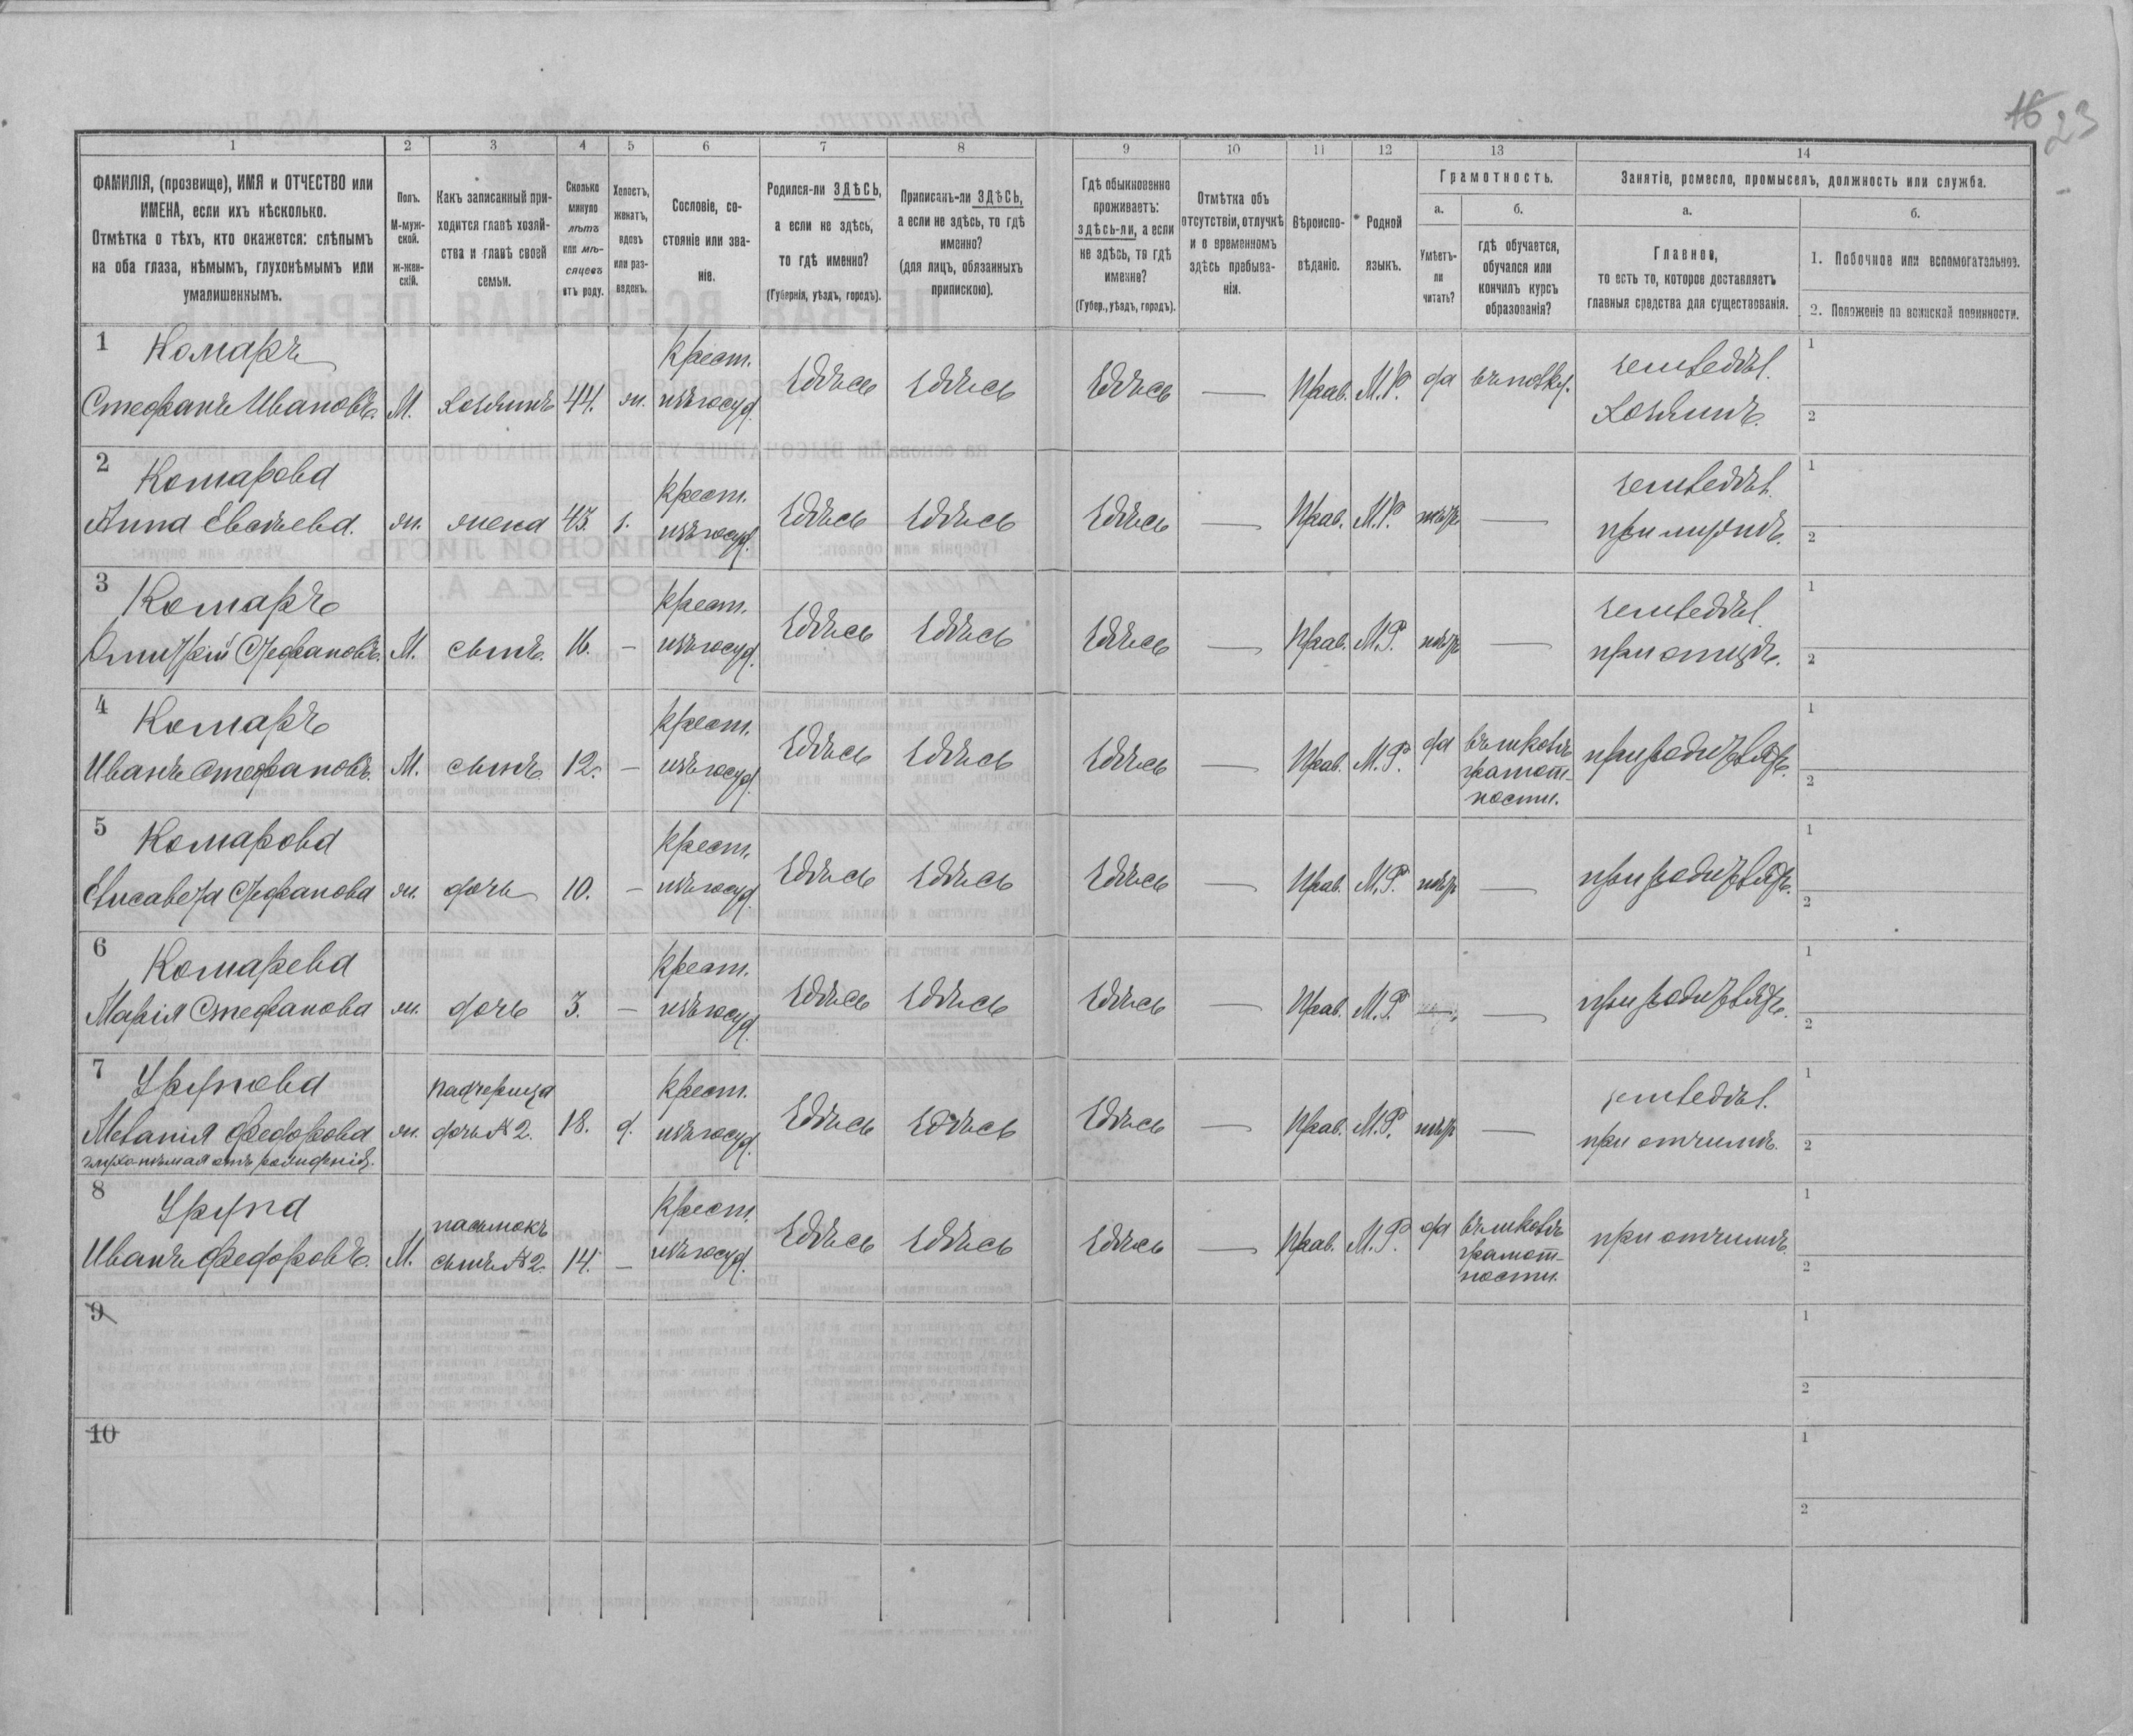 16 23
1 2 3 4 5 6 7 8 9 10 11 12 13 14
ФАМИЛІЯ, (прозвище), ИМЯ и ОТЧЕСТВО или
ИМЕНА, если ихъ нѣсколько.
Отмѣтка о тѣхъ, кто окажется: слѣпымъ
на оба глаза, нѣмымъ, глухонѣмымъ или
умалишеннымъ.
Полъ.
М-муж-
ской.
Ж-жен-
скій.
Какъ записанный при-
ходится главѣ хозяй-
ства и главѣ своей
семьи.
Сколько
минуло
лѣтъ
или мѣ-
сяцевъ
отъ роду.
Холостъ,
женатъ,
вдовъ
или раз-
веденъ.
Сословіе, со-
стояніе или зва-
ніе.
Родился-ли ЗДѢСЬ,
а если не здѣсь,
то гдѣ именно?
(Губернія, уѣздъ, городъ).
Приписанъ-ли ЗДѢСЬ,
а если не здѣсь, то гдѣ
именно?
(для лицъ, обязанныхъ
припискою).
Гдѣ обыкновенно
проживаетъ:
здѣсь-ли, а если
не здѣсь, то гдѣ
именно?
(Губер., уѣздъ, городъ).
Отмѣтка объ
отсутствіи, отлучкѣ
и о временномъ
здѣсь пребыва-
ніи.
Вѣроиспо-
вѣданіе.
Родной
языкъ.
Грамотность.
а.
Умѣетъ-
ли
читать?
б.
гдѣ обучается,
обучался или
кончилъ курсъ
образованія?
Занятіе, ремесло, промыселъ, должность или служба.
а.
Главное,
то есть то, которое доставляетъ
главныя средства для существованія.
б.
1. Побочное или вспомогательное.
2. Положеніе по воинской повинности.
1 Комаръ Крест. земледѣл. 1
Стефанъ Ивановъ. М. хозяинъ 44. ж. изъ госуд. Здѣсь Здѣсь Здѣсь — Прав. М.Р. да хозяинъ. 2
2 Комарова Крест. земледѣл. 1
Анна ж. жена 43. з. изъ госуд. Здѣсь Здѣсь Здѣсь — Прав. М.Р. нѣтъ — при мужѣ. 2
3 Комаръ Крест. земледѣл. 1
Дмитрій Стефановъ. М. сынъ. 16. — изъ госуд. Здѣсь Здѣсь Здѣсь — Прав. М.Р. нѣтъ — при отцѣ. 2
4 Комаръ Крест. въ школѣ 1
Иванъ Стефановъ. М. сынъ 12. — изъ госуд. Здѣсь Здѣсь Здѣсь — Прав. М.Р. да грамот- при родителяхъ. 2
ности.
5 Комарова Крест. 1
Елисавета Стефанова ж. дочь 10. — изъ госуд. Здѣсь Здѣсь Здѣсь — Прав. М.Р. нѣтъ — при родителяхъ. 2
6 Комарева Крест. 1
Марія Стефанова ж. дочь 3. — изъ госуд. Здѣсь Здѣсь Здѣсь — Прав. М.Р. — при родителяхъ. 2
7 Падчерица Крест. земледѣл. 1
Меланія Федорова ж. дочь №2. 18. д. изъ госуд. Здѣсь Здѣсь Здѣсь — Прав. М.Р. нѣтъ — при отчимѣ. 2
глухонѣмая отъ рожденія.
8 пасынокъ Крест. въ школѣ 1
Иванъ Федоровъ. М. сынъ №2. 14. — изъ госуд. Здѣсь Здѣсь Здѣсь — Прав. М.Р. да грамот- при отчимѣ. 2
ности.
9 1
2
10 1
2